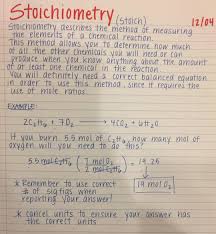 Stoichiometry (Stoich) 12/04
Stoichiometry describes the method of measuring
the elements of a chemical reaction.
This method allows you to determine how much
of all the other chemicals you will need or can
produce when you know anything about the amount
of at least one chemical in the reaction.
You will definitely need a correct balanced equation
in order to use this method, since it requires the
use of mole ratios.
EXAMPLE:
2C₂H₆ + 7O₂ → 4CO₂ + 6H₂O
If you burn 5.5 mol of C₂H₆, how many mol of
oxygen will you need to do this?
5.5 mol C₂H₆ (7 mol O₂ / 2 mol C₂H₆) = 19.25
* Remember to use correct
# of sig figs when
reporting your answer!
19 mol O₂
* cancel units to ensure your answer has
the correct units